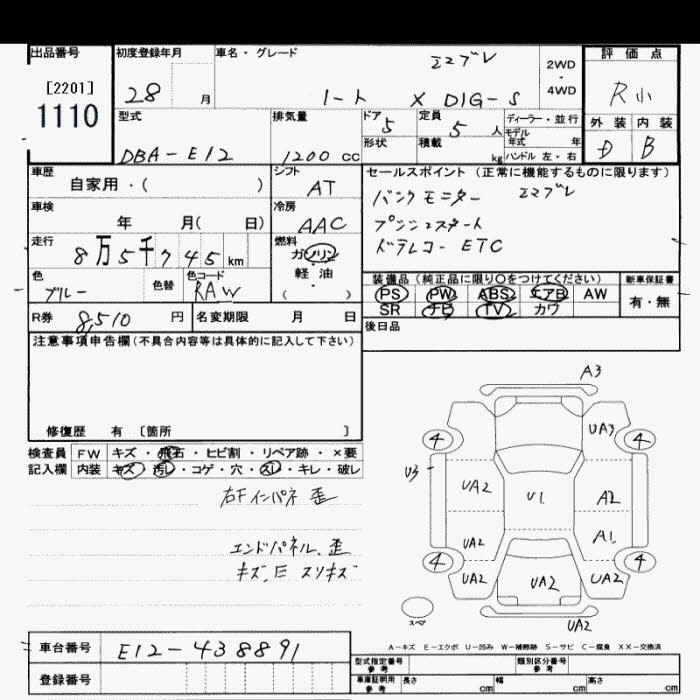 出品番号
[2201]
1110
初度登録年月
28 月
車名・グレード
エマブレ
ノート X DIG-S
2WD
・
4WD
評価点
R小
外装 内装
D B
型式
DBA-E12
排気量
1200 cc
ドア 5
形状
定員 5 人
積載 kg
ディーラー・並行
モデル年式 年
ハンドル 左・右
車歴
自家用・( )
シフト
AT
車検
年 月( 日)
冷房
AAC
走行
8万5千745km
燃料
ガソリン
軽油
( ・ )
色
ブルー
色替
色コード
RAW
R券 8,510 円
名変期限 月 日
セールスポイント(正常に機能するものに限ります)
バックモニター エマブレ
プッシュスタート
ドラレコー ETC
装備品(純正品に限り○をつけてください)
PS PW ABS エアB AW
SR ナビ TV カワ
新車保証書
有・無
後日品
注意事項申告欄(不具合内容等は具体的に記入して下さい)
修復歴 有 [箇所 ]
検査員 FW キズ・飛石・ヒビ割・リペア跡・×要
記入欄 内装 キズ・汚レ・コゲ・穴・スレ・キレ・破レ
右Fインパネ 歪
エンドパネル、歪
キズ、E スリキズ
A3
4 UA3 4
U3
UA2 U1 A2
UA2 A1
4 4
UA2 UA2 UA2
UA2
スペア
A-キズ E-エクボ U-凹み W-補修跡 S-サビ C-腐食 XX-交換済
車台番号 E12-438891
登録番号
型式指定番号 参考
類別区分番号 参考
車庫証明用 参考
長さ cm 幅 cm 高さ cm